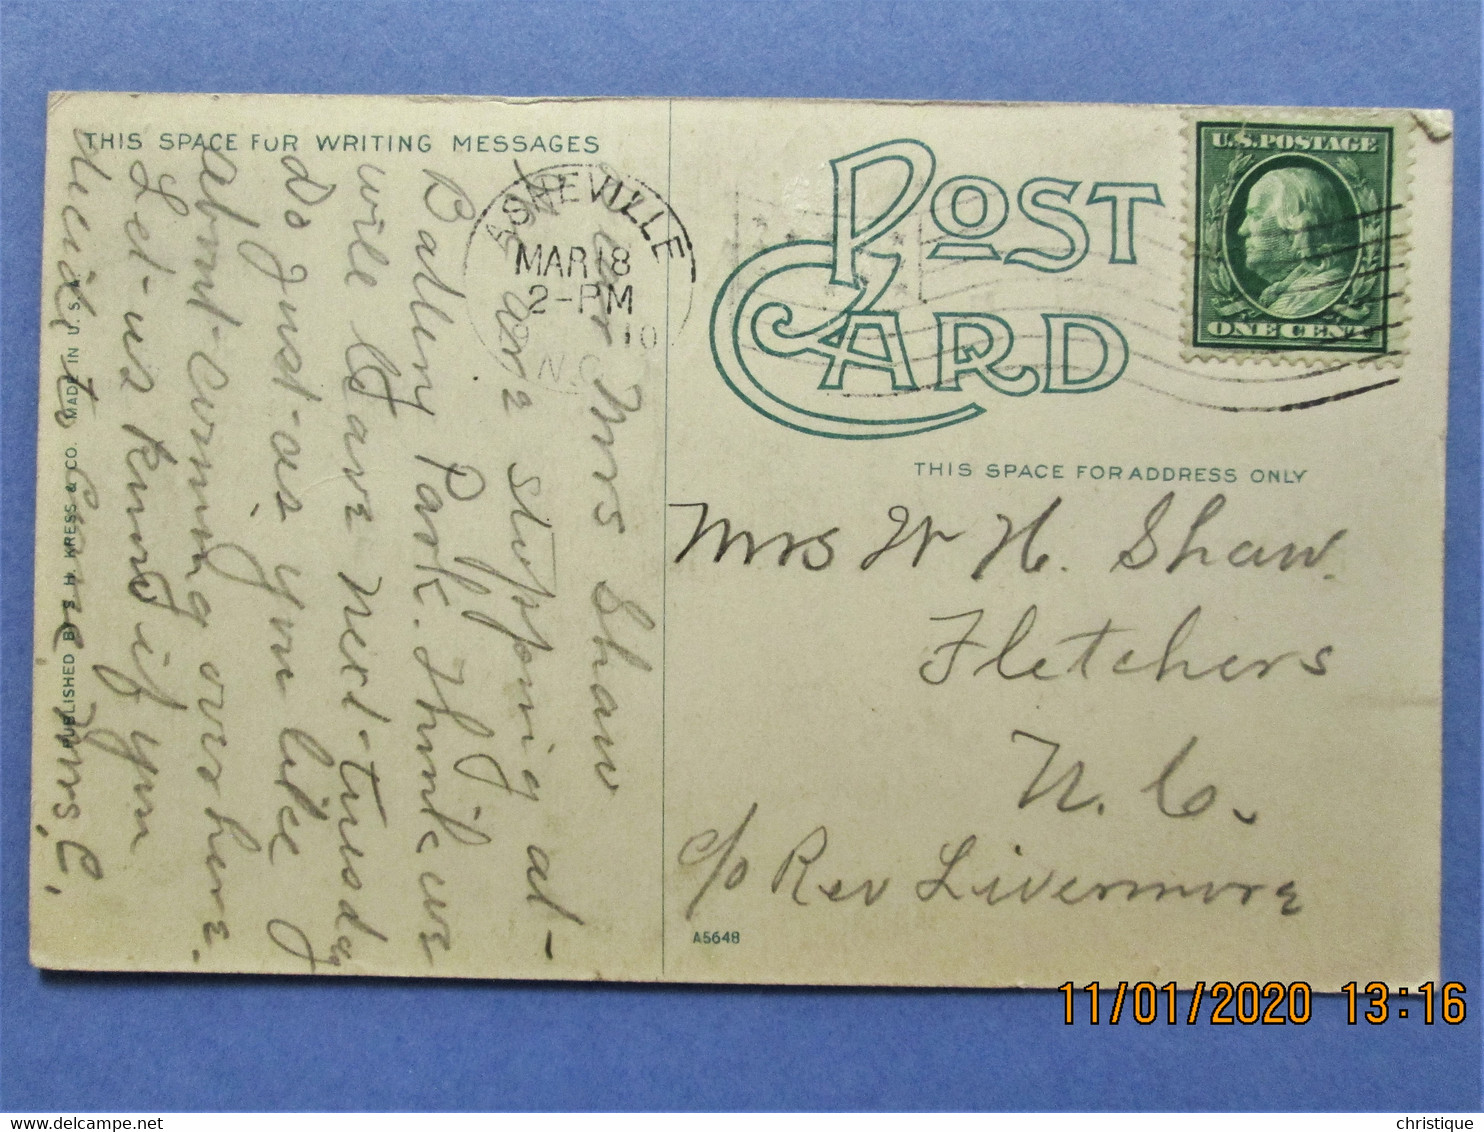 THIS SPACE FOR WRITING MESSAGES
Dear Mrs Shaw
We are stopping at-
Battery Park. Think we
will leave next-tuesday
Do Just-as you like
about-coming over here.
Let-us know if you
decide to Come, Mrs, C,
PUBLISHED BY S. H. KRESS & CO. MADE IN U. S. A.
ASHEVILLE
MAR 18
2-PM
10
N.C.
POST CARD
U.S. POSTAGE
ONE CENT
THIS SPACE FOR ADDRESS ONLY
Mrs W H. Shaw.
Fletchers
N. C.
c/o Rev Livermore
A5648
11/01/2020 13:16
christique